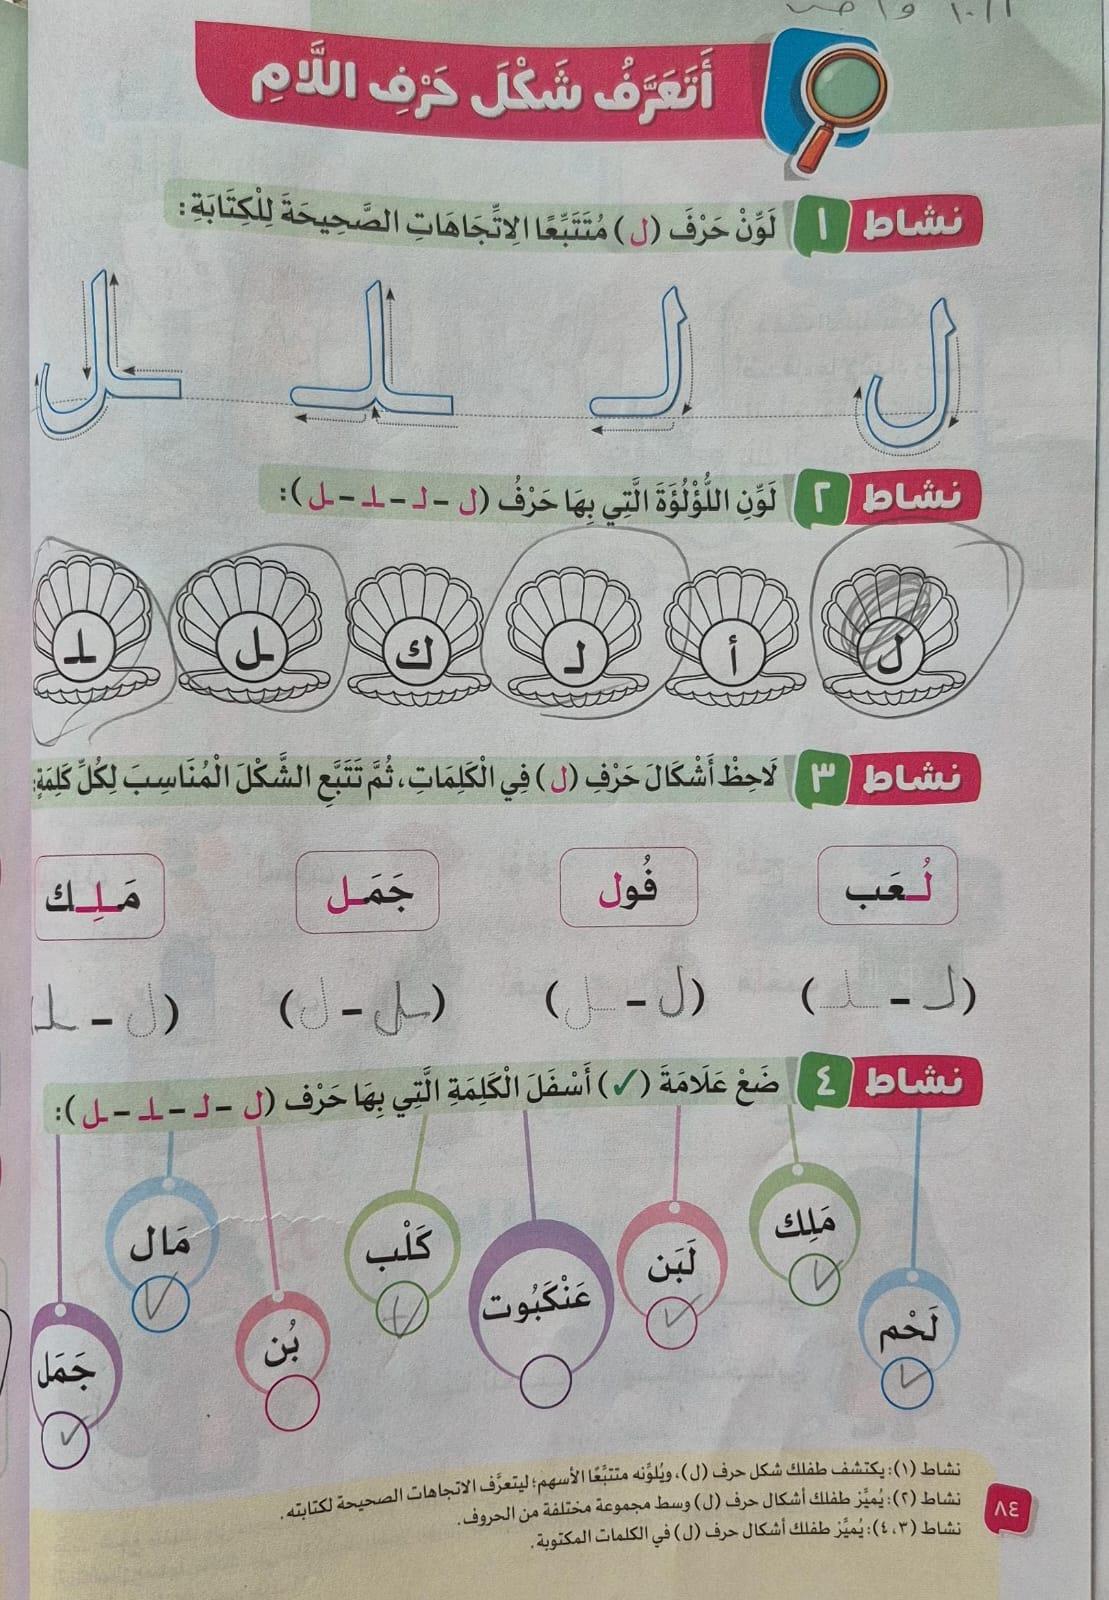 ١٠/١ واحد
أَتَعَرَّفُ شَكْلَ حَرْفِ اللَّامِ
نشاط ١ لَوِّنْ حَرْفَ (ل) مُتَتَبِّعًا الِاتِّجَاهَاتِ الصَّحِيحَةَ لِلْكِتَابَةِ:
ل لـ ـلـ ـل
نشاط ٢ لَوِّنِ اللُّؤْلُؤَةَ الَّتِي بِهَا حَرْفُ (ل - لـ - ـلـ - ـل):
ل أ لـ ك ـل ـلـ
نشاط ٣ لَاحِظْ أَشْكَالَ حَرْفِ (ل) فِي الْكَلِمَاتِ، ثُمَّ تَتَبَّعِ الشَّكْلَ الْمُنَاسِبَ لِكُلِّ كَلِمَةٍ:
لُعَب فُول جَمَل مَلِك
(لـ - ـلـ) (ل - ـل) (ـل - ل) (ل - ـلـ
نشاط ٤ ضَعْ عَلَامَةَ (✓) أَسْفَلَ الْكَلِمَةِ الَّتِي بِهَا حَرْف (ل - لـ - ـلـ - ـل):
لَحْم مَلِك لَبَن عَنْكَبُوت كَلْب بُن مَال جَمَل
نشاط (١): يكتشف طفلك شكل حرف (ل)، ويُلوِّنه متتبِّعًا الأسهم؛ ليتعرَّف الاتجاهات الصحيحة لكتابته.
نشاط (٢): يُميِّز طفلك أشكال حرف (ل) وسط مجموعة مختلفة من الحروف.
نشاط (٣، ٤): يُميِّز طفلك أشكال حرف (ل) في الكلمات المكتوبة.
٨٤